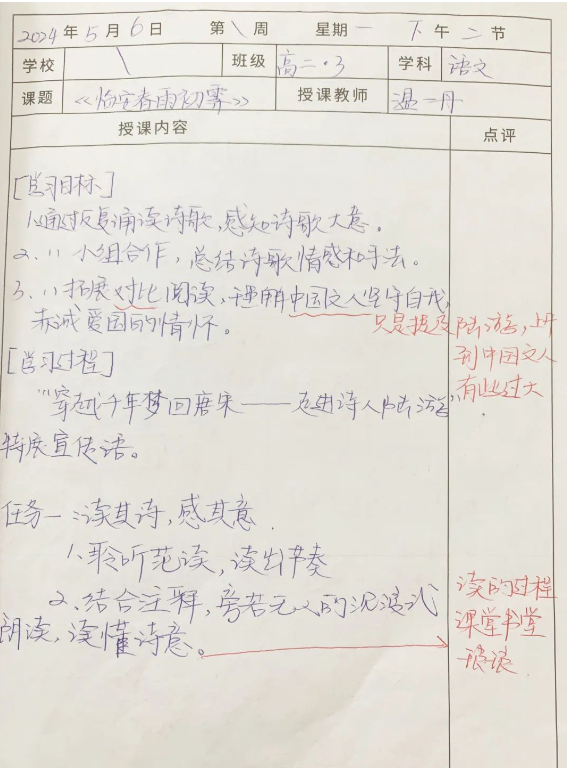 2024年5月6日 第\周 星期一 下午二节
学校 \ 班级 高二·3 学科 语文
课题 《临安春雨初霁》 授课教师 温一丹
授课内容 点评
[学习目标]
1.通过反复诵读诗歌,感知诗歌大意。
2. 〃 小组合作,总结诗歌情感和手法。
3. 〃 拓展对比阅读,理解中国文人坚守自我,
赤诚爱国的情怀。
只是提及陆游,上升
到中国文人
有些过大
[学习过程]
“穿越千年梦回唐宋——走进诗人陆游”
特展宣传语。
任务一:读其诗,感其意.
1.聆听范读,读出节奏
2.结合注释,旁若无人的沉浸式
朗读,读懂诗意。
读的过程
课堂书堂
琅琅.